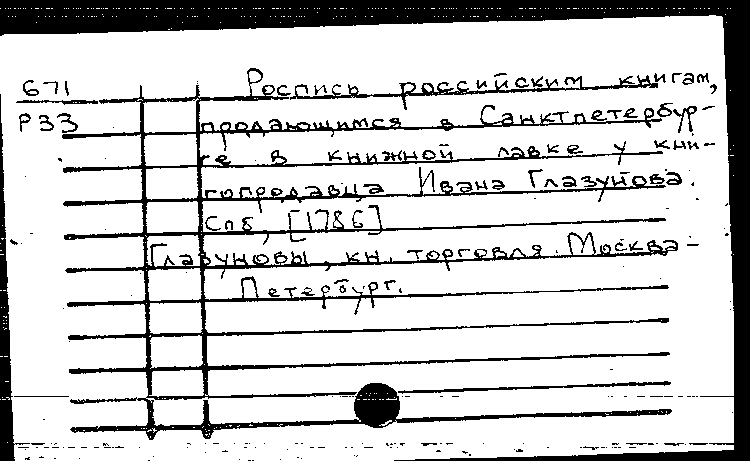 671 Роспись российским книгам,
Р33 продающимся в Санктпетербур-
ге в книжной лавке у кни-
гопродавца Ивана Глазунова.
Спб, [1786]
Глазуновы, кн. торговля. Москва-
Петербург.